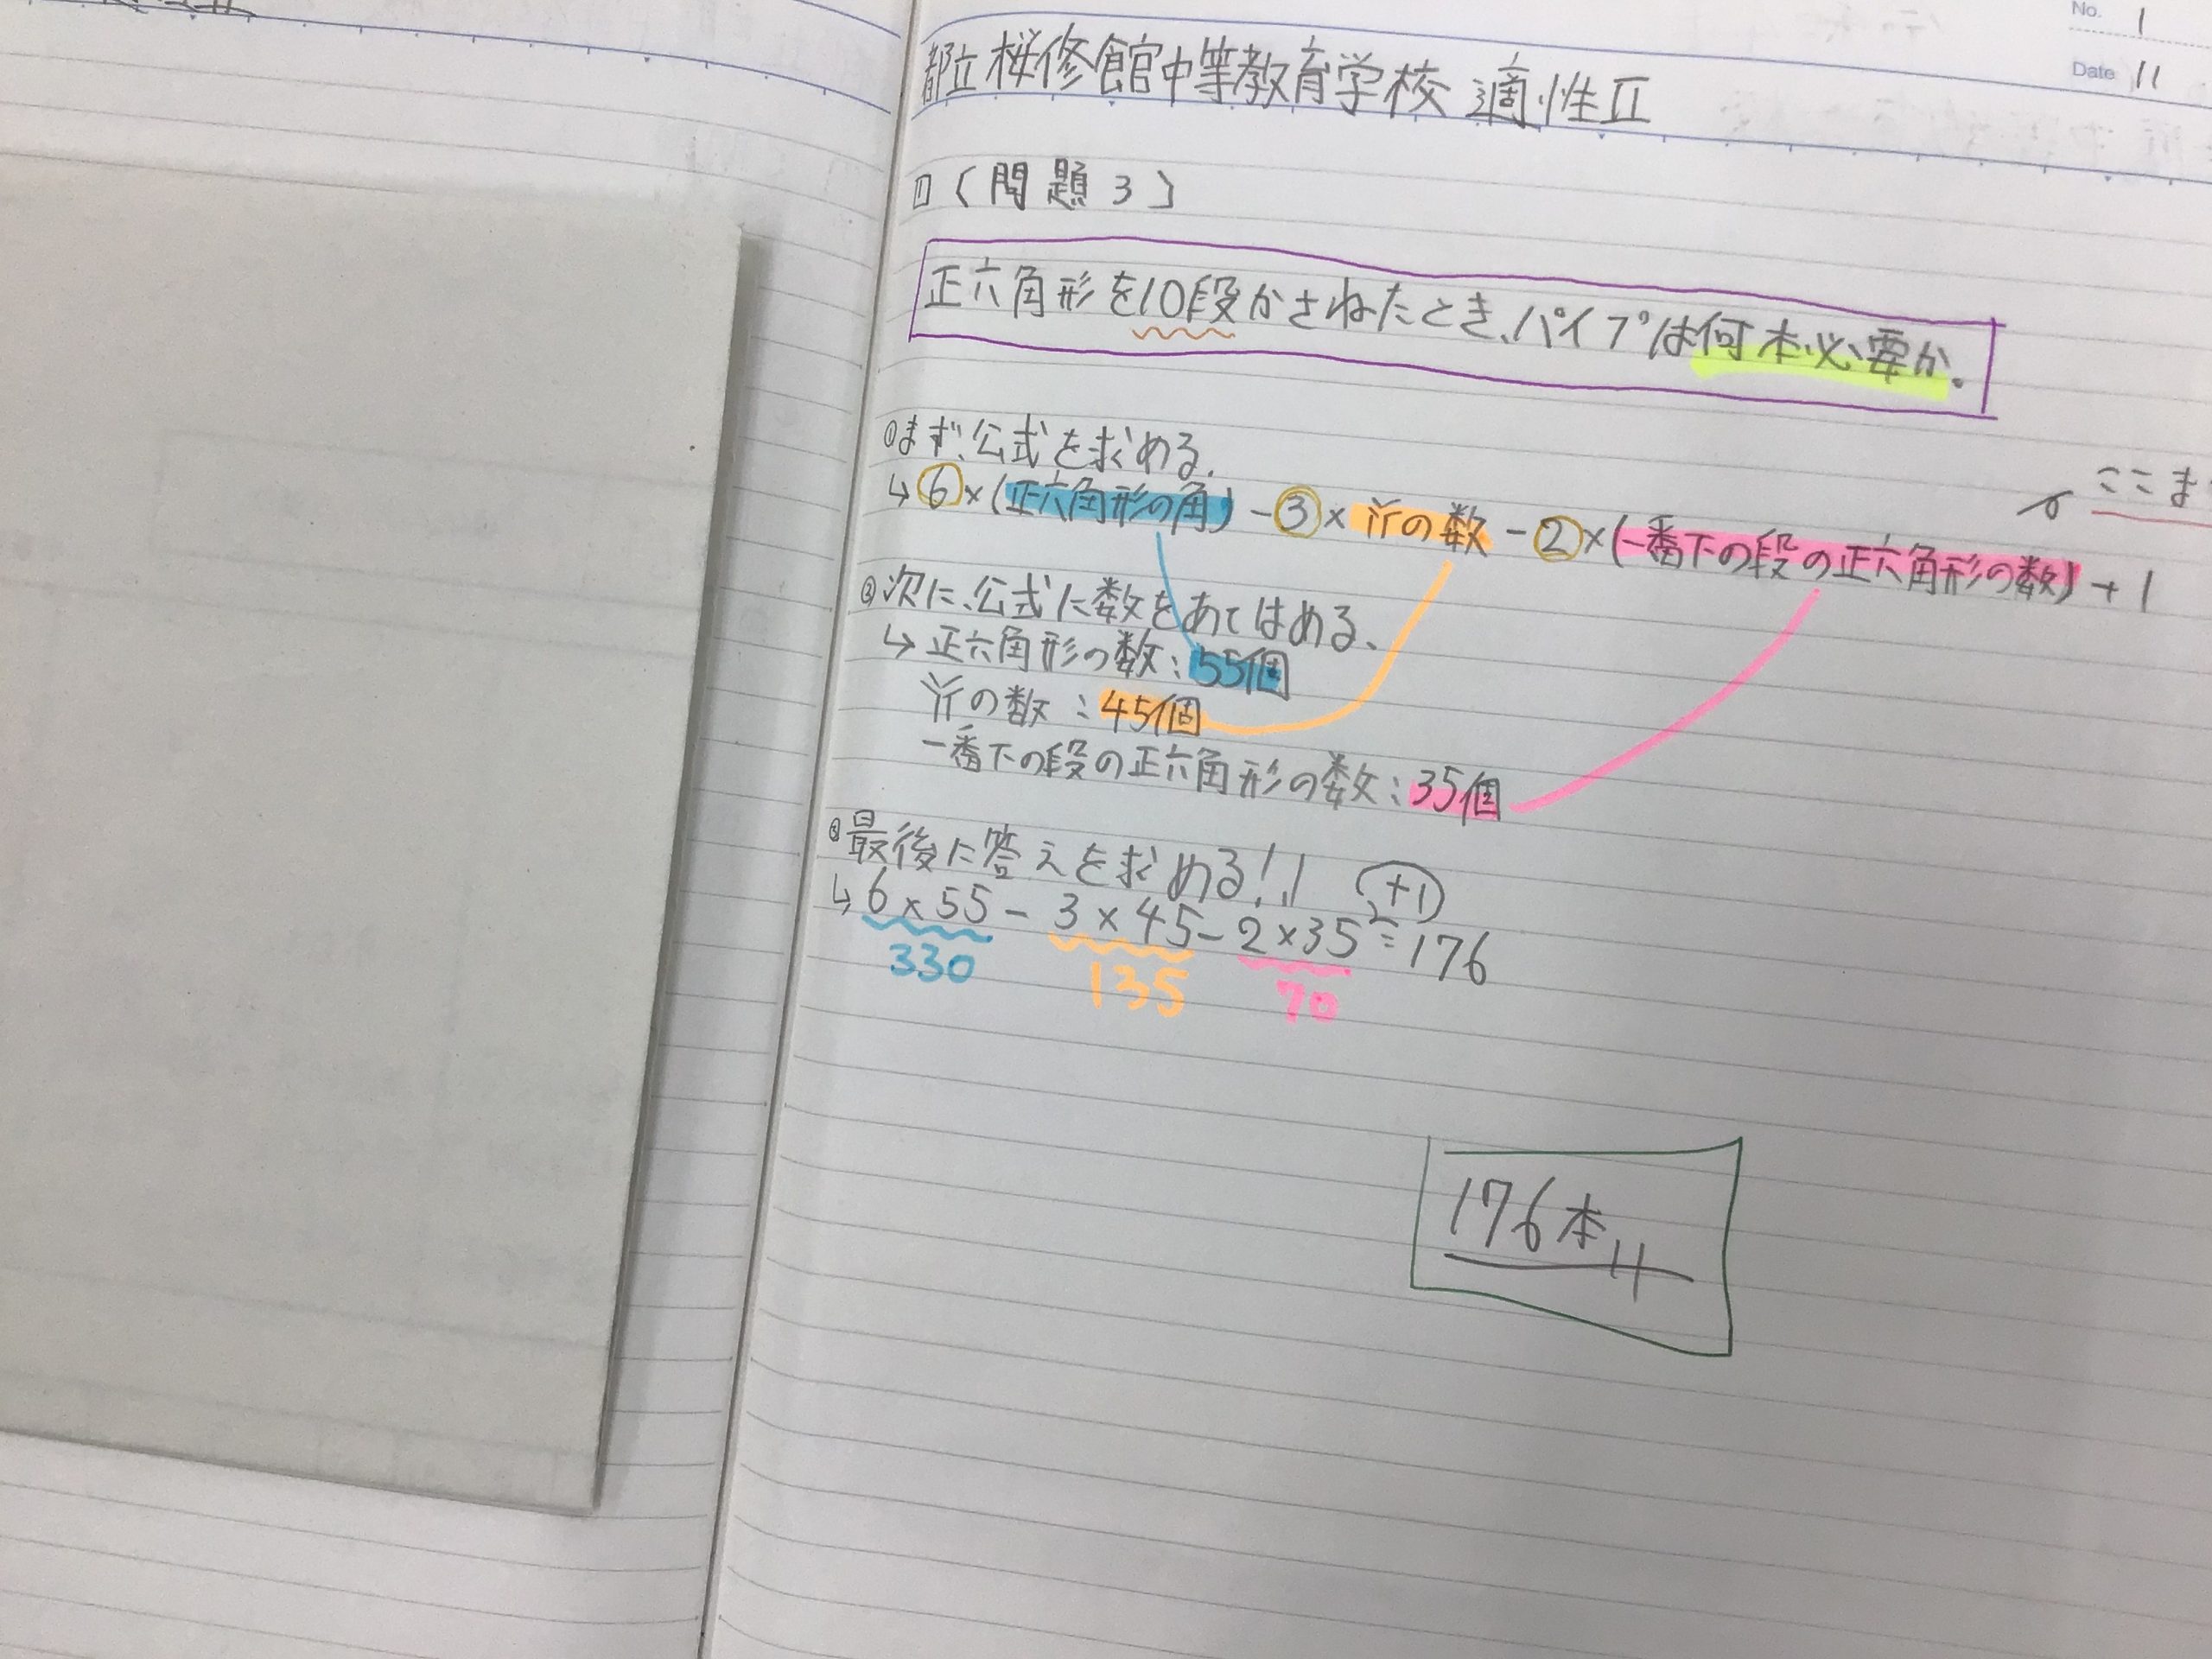 No. 1
Date 11
都立桜修館中等教育学校 適性Ⅱ
1 〔問題3〕
正六角形を10段かさねたとき、パイプは何本必要か。
①まず、公式を求める。
ここま
↳ 6×(正六角形の角)-3×の数-2×(一番下の段の正六角形の数)+1
②次に、公式に数をあてはめる、
↳ 正六角形の数:55個
の数:45個
一番下の段の正六角形の数:35個
③最後に答えを求める!!
↳ 6×55-3×45-2×35+1=176
330 135 70
176本